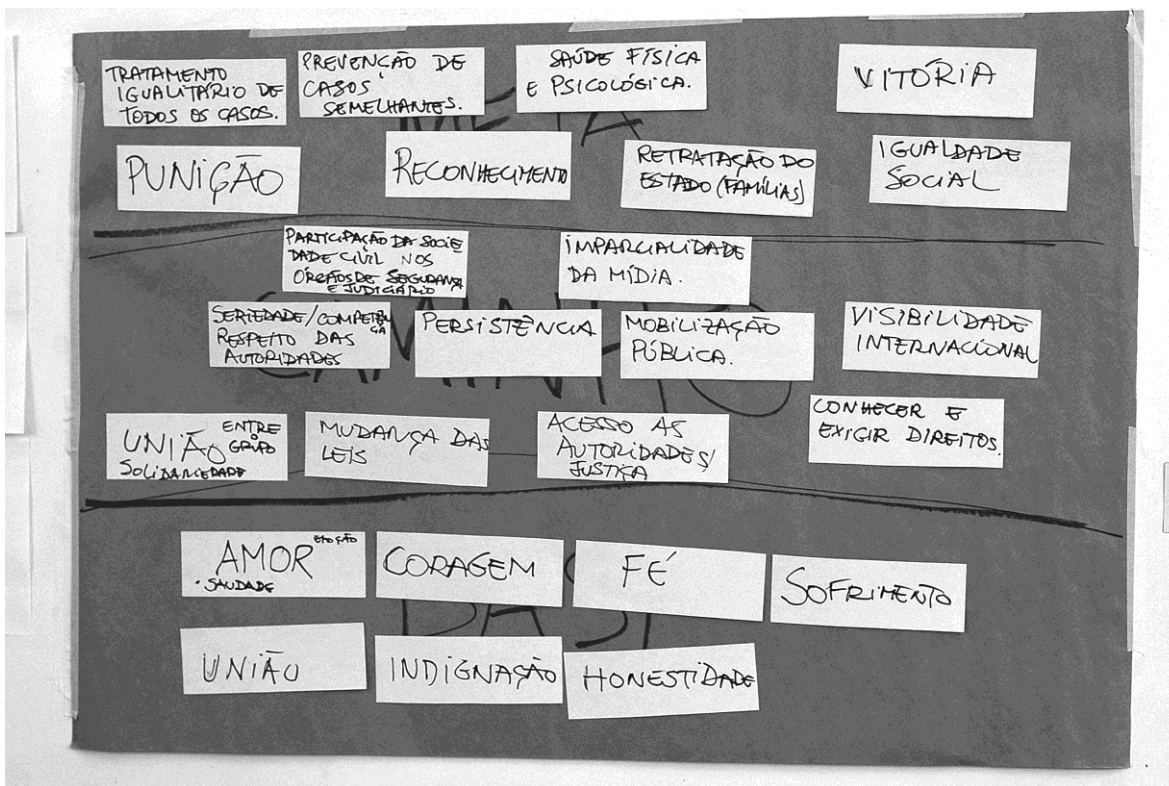 TRATAMENTO
IGUALITÁRIO DE
TODOS OS CASOS.
PREVENÇÃO DE
CASOS
SEMELHANTES.
SAÚDE FÍSICA
E PSICOLÓGICA.
VITÓRIA
META
PUNIÇÃO
RECONHECIMENTO
RETRATAÇÃO DO
ESTADO (FAMÍLIAS)
IGUALDADE
SOCIAL
PARTICIPAÇÃO DA SOCIE
DADE CIVIL NOS
ÓRGÃOS DE SEGURANÇA
E JUDICIÁRIO
IMPARCIALIDADE
DA MÍDIA.
SERIEDADE/COMPETÊN
CIA
RESPEITO DAS
AUTORIDADES
PERSISTÊNCIA
MOBILIZAÇÃO
PÚBLICA.
VISIBILIDADE
INTERNACIONAL
CAMINHO
UNIÃO ENTRE
O GRUPO
SOLIDARIEDADE
MUDANÇA DAS
LEIS
ACESSO AS
AUTORIDADES/
JUSTIÇA
CONHECER E
EXIGIR DIREITOS.
AMOR EMOÇÃO
• SAUDADE
CORAGEM
FÉ
SOFRIMENTO
BASE
UNIÃO
INDIGNAÇÃO
HONESTIDADE